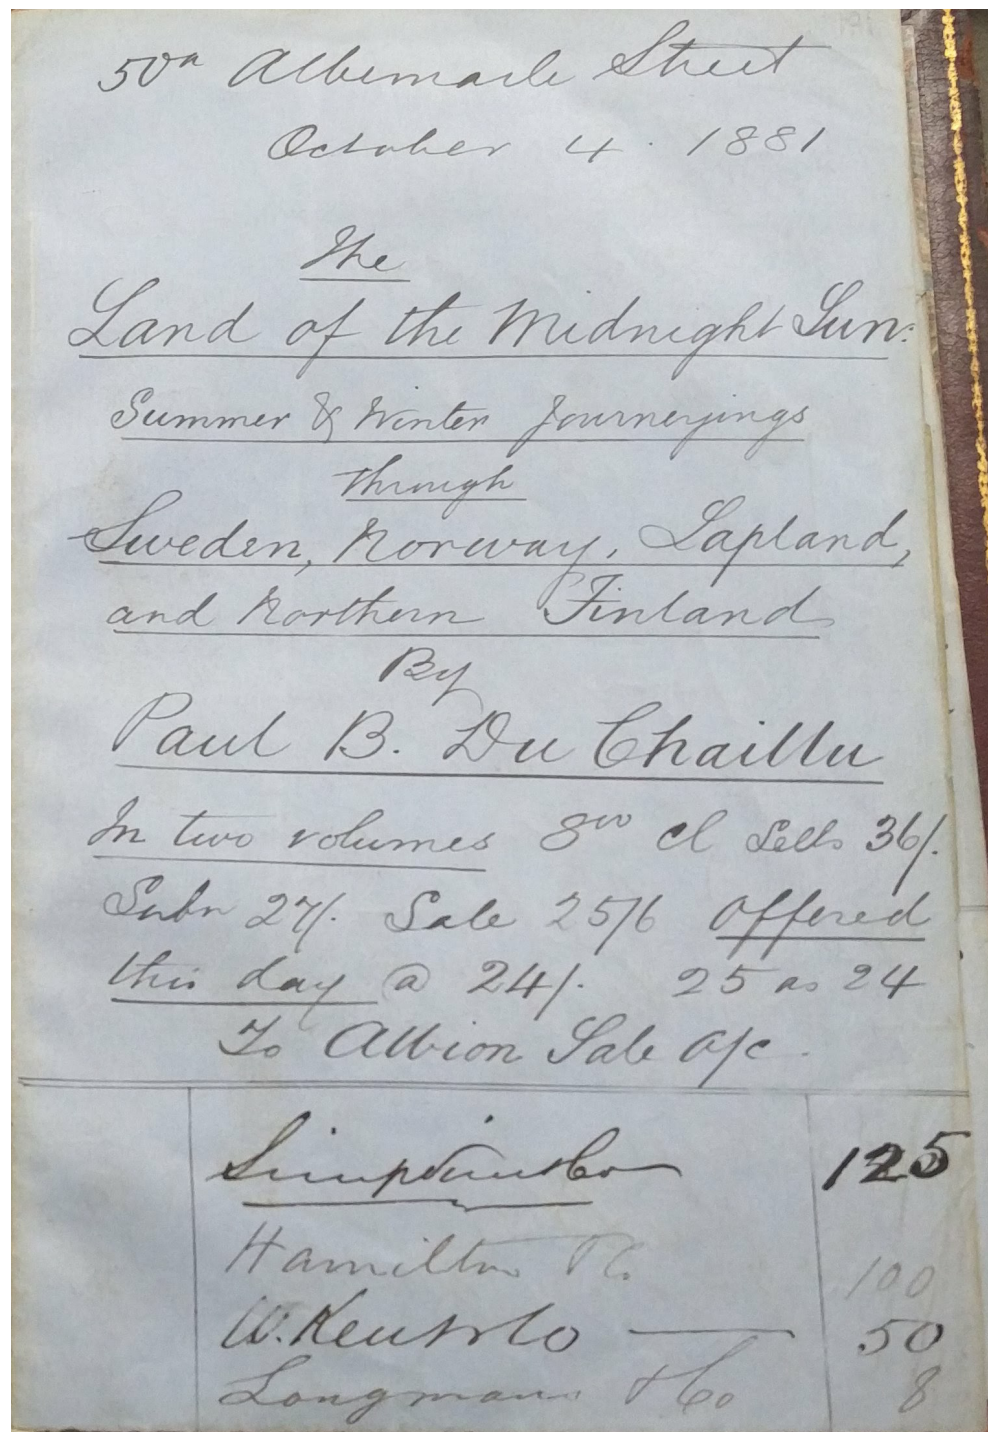 50a Albemarle Street
October 4. 1881
The
Land of the Midnight Sun:
Summer & Winter Journeyings
through
Sweden, Norway, Lapland,
and Northern Finland
By
Paul B. Du Chaillu
In two volumes 8vo cl Sells 36/.
Subn 27/. Sale 25/6 Offered
this day @ 24/. 25 as 24
To Albion Sale A/c.
Simpkin & Co 125
Hamilton 100
W. Kent & Co 50
Longmans & Co 8